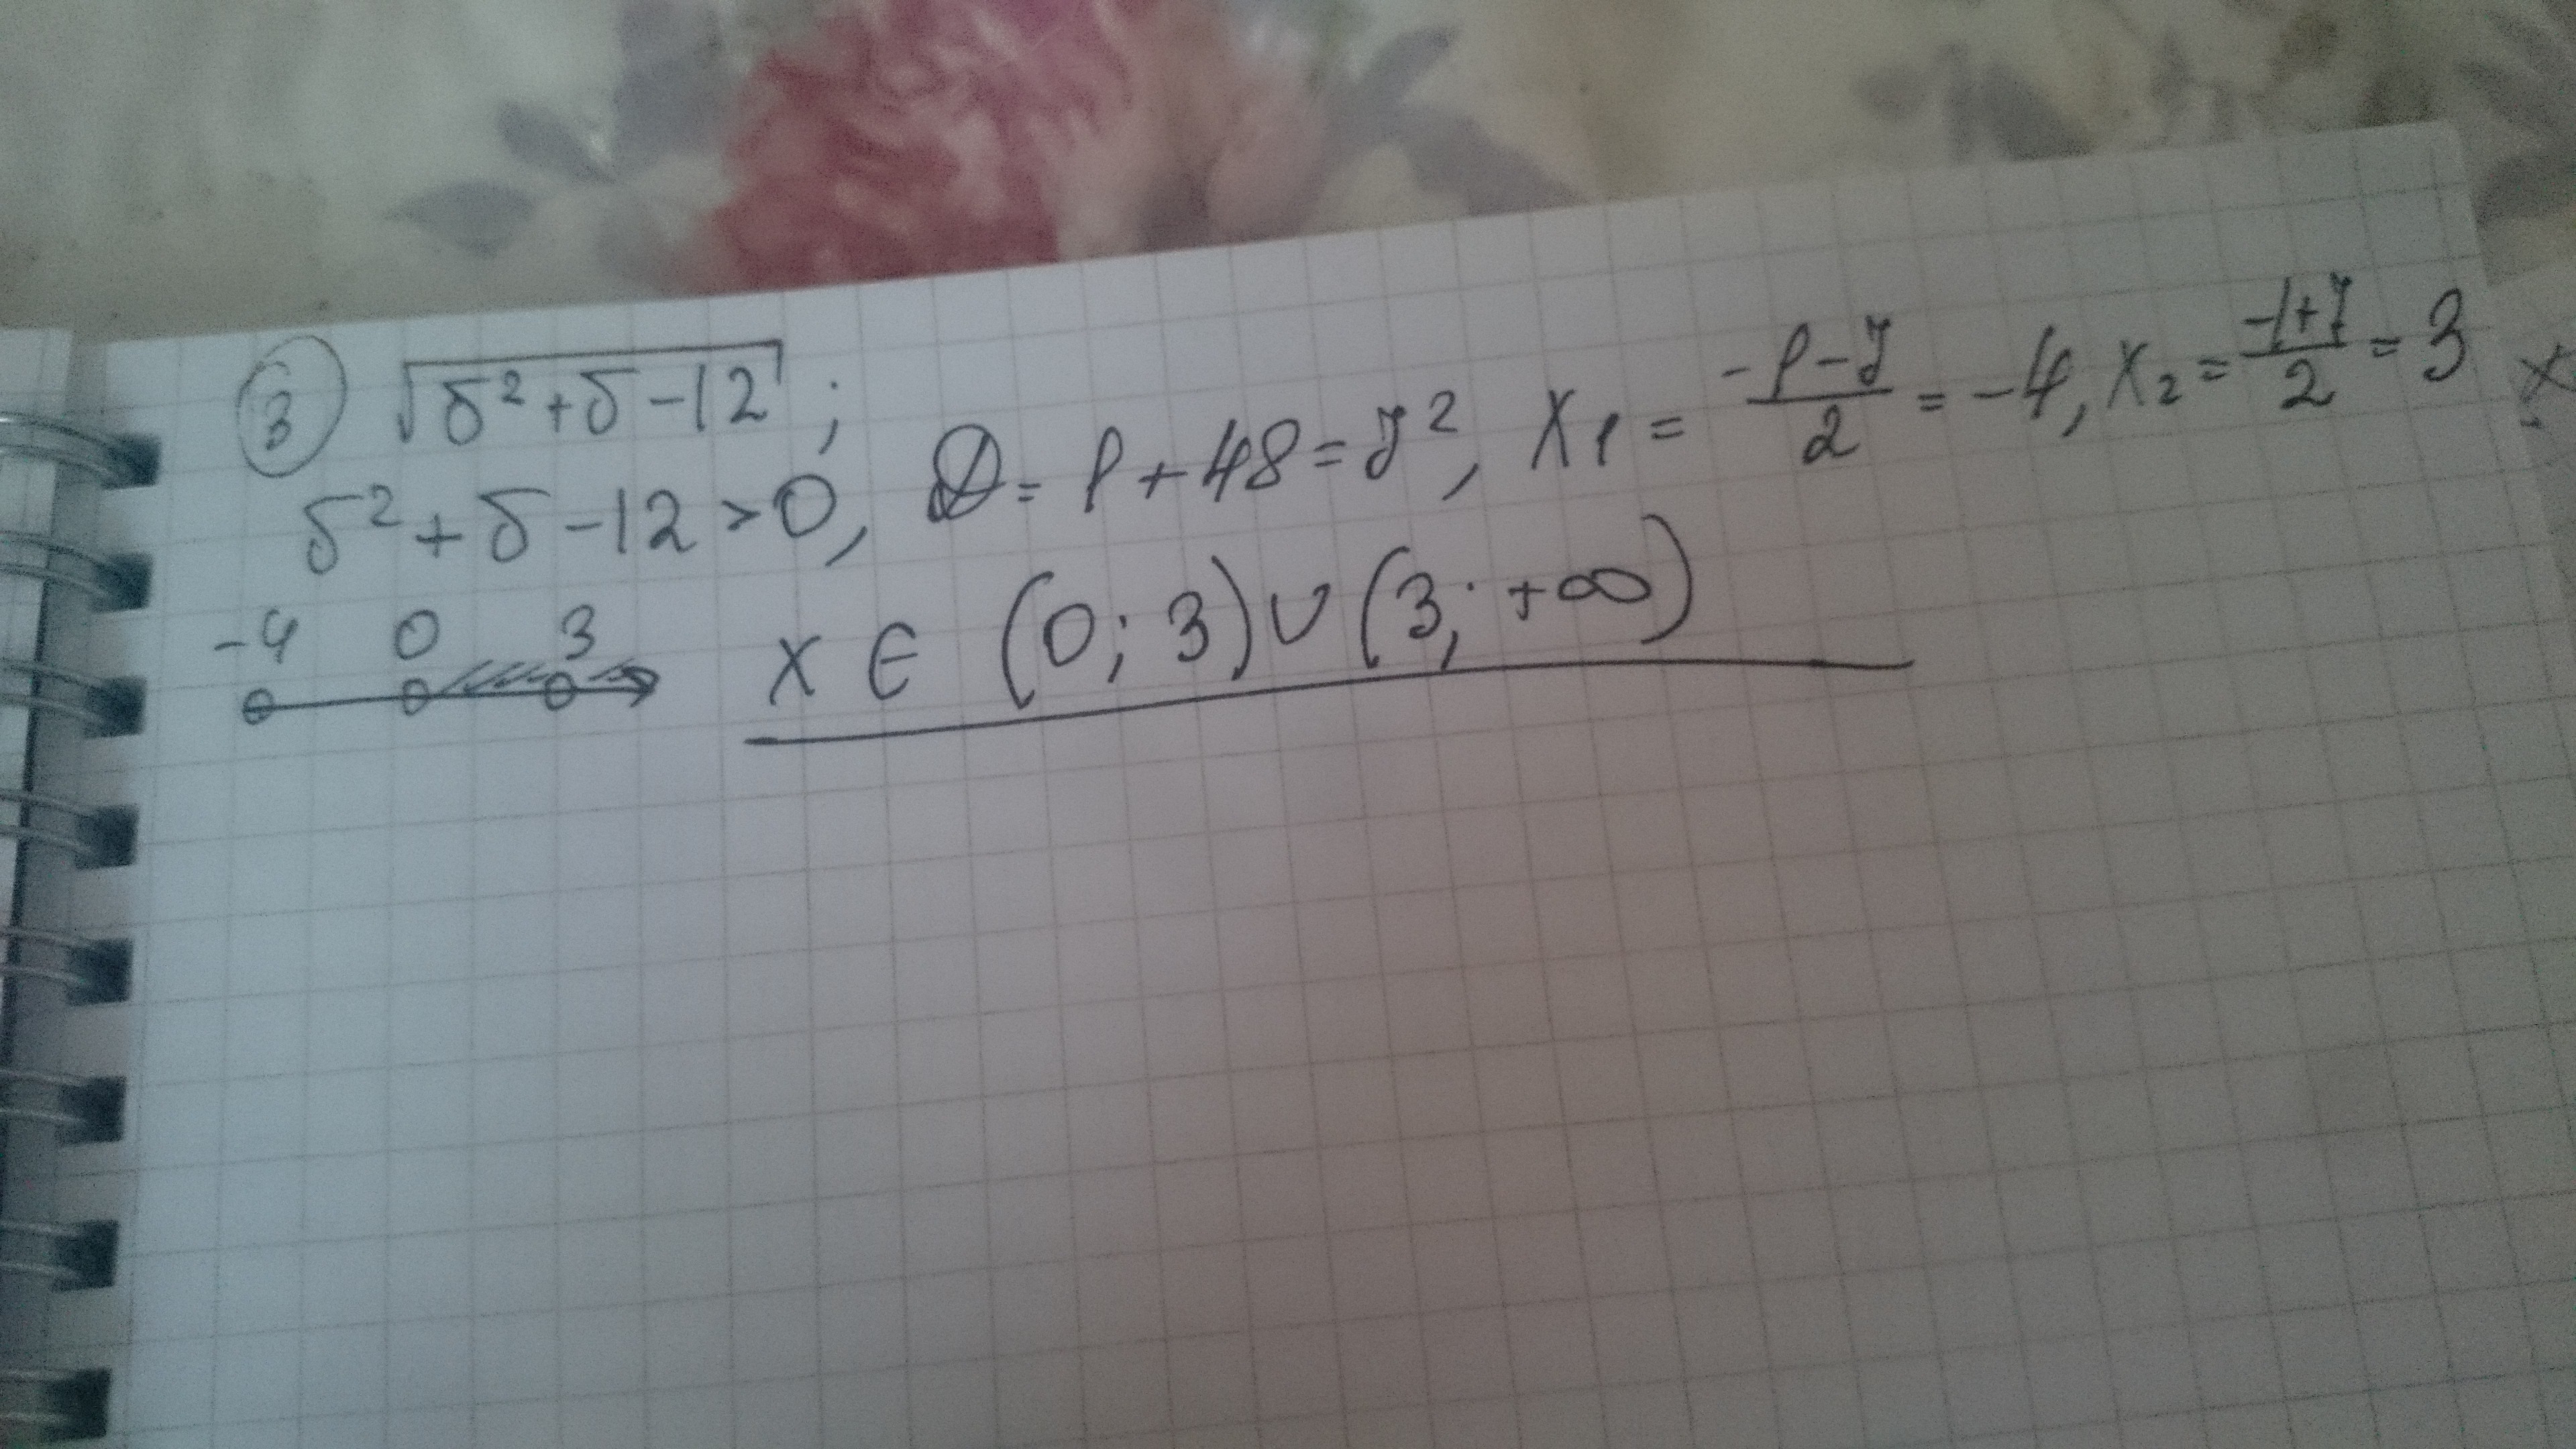 ③ √(δ² + δ - 12) ;
δ² + δ - 12 > 0, D = 1 + 48 = 7², X₁ = (-1 - 7)/2 = -4, X₂ = (-1 + 7)/2 = 3 x
-4 0 3 x ∈ (0; 3) ∪ (3; +∞)